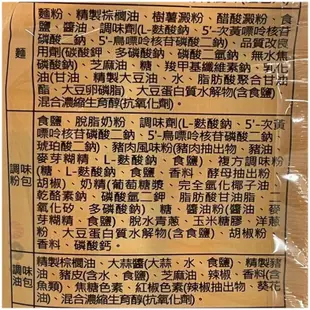 麵粉、精製棕櫚油、樹薯澱粉、醋酸澱粉、食
鹽、醬油、調味劑(L-麩酸鈉、5'-次黃嘌呤核苷
磷酸二鈉、5'-鳥嘌呤核苷磷酸二鈉)、品質改良
用劑(碳酸鉀、多磷酸鈉、磷酸二氫鈉、無水焦
磷酸鈉)、芝麻油、糖、羧甲基纖維素鈉、乳化
油(甘油、精製大豆油、水、脂肪酸聚合甘油
酯、大豆卵磷脂)、大豆蛋白質水解物(含食鹽)
混合濃縮生育醇(抗氧化劑)
麵
食鹽、脫脂奶粉、調味劑(L-麩酸鈉、5'-次黃
嘌呤核苷磷酸二鈉、5'-鳥嘌呤核苷磷酸二鈉、
琥珀酸二鈉)、豬肉風味粉(豬肉抽出物、豬油、
麥芽糊精、L-麩酸鈉、食鹽)、複方調味粉
(糖、L-麩酸鈉、食鹽、香料)、酵母抽出粉、
胡椒、奶精(葡萄糖漿、完全氫化椰子油、
乳酪蛋白鈉、磷酸氫二鉀、脂肪酸甘油脂、二
氧化矽、多磷酸鈉)、糖、醬油粉(醬油、麥
芽糊精、食鹽)、脫水青蔥、玉米糖膠、洋蔥
粉、大豆蛋白質水解物(含食鹽)、胡椒粉、
香料、磷酸鈣
調味
粉包
精製棕櫚油、大蒜醬(大蒜、水、食鹽)、精製
豬油、豬皮(含水、食鹽)、芝麻油、辣椒、香料(含
魚類)、焦糖色素、紅椒色素(辣椒抽出物、葵花
油)、混合濃縮生育醇(抗氧化劑)
調味
油包